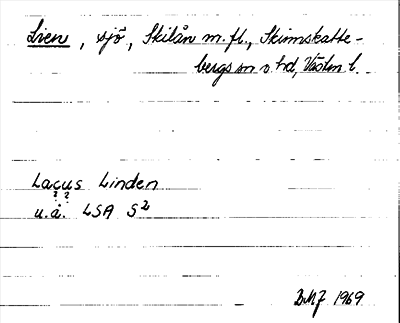 Lien, sjö, Skilån m. fl., Skinnskatte-
bergs sn o. hd, Västm l.
Lacus Linden
? ?
u.å. LSA S2
BMJ 1969